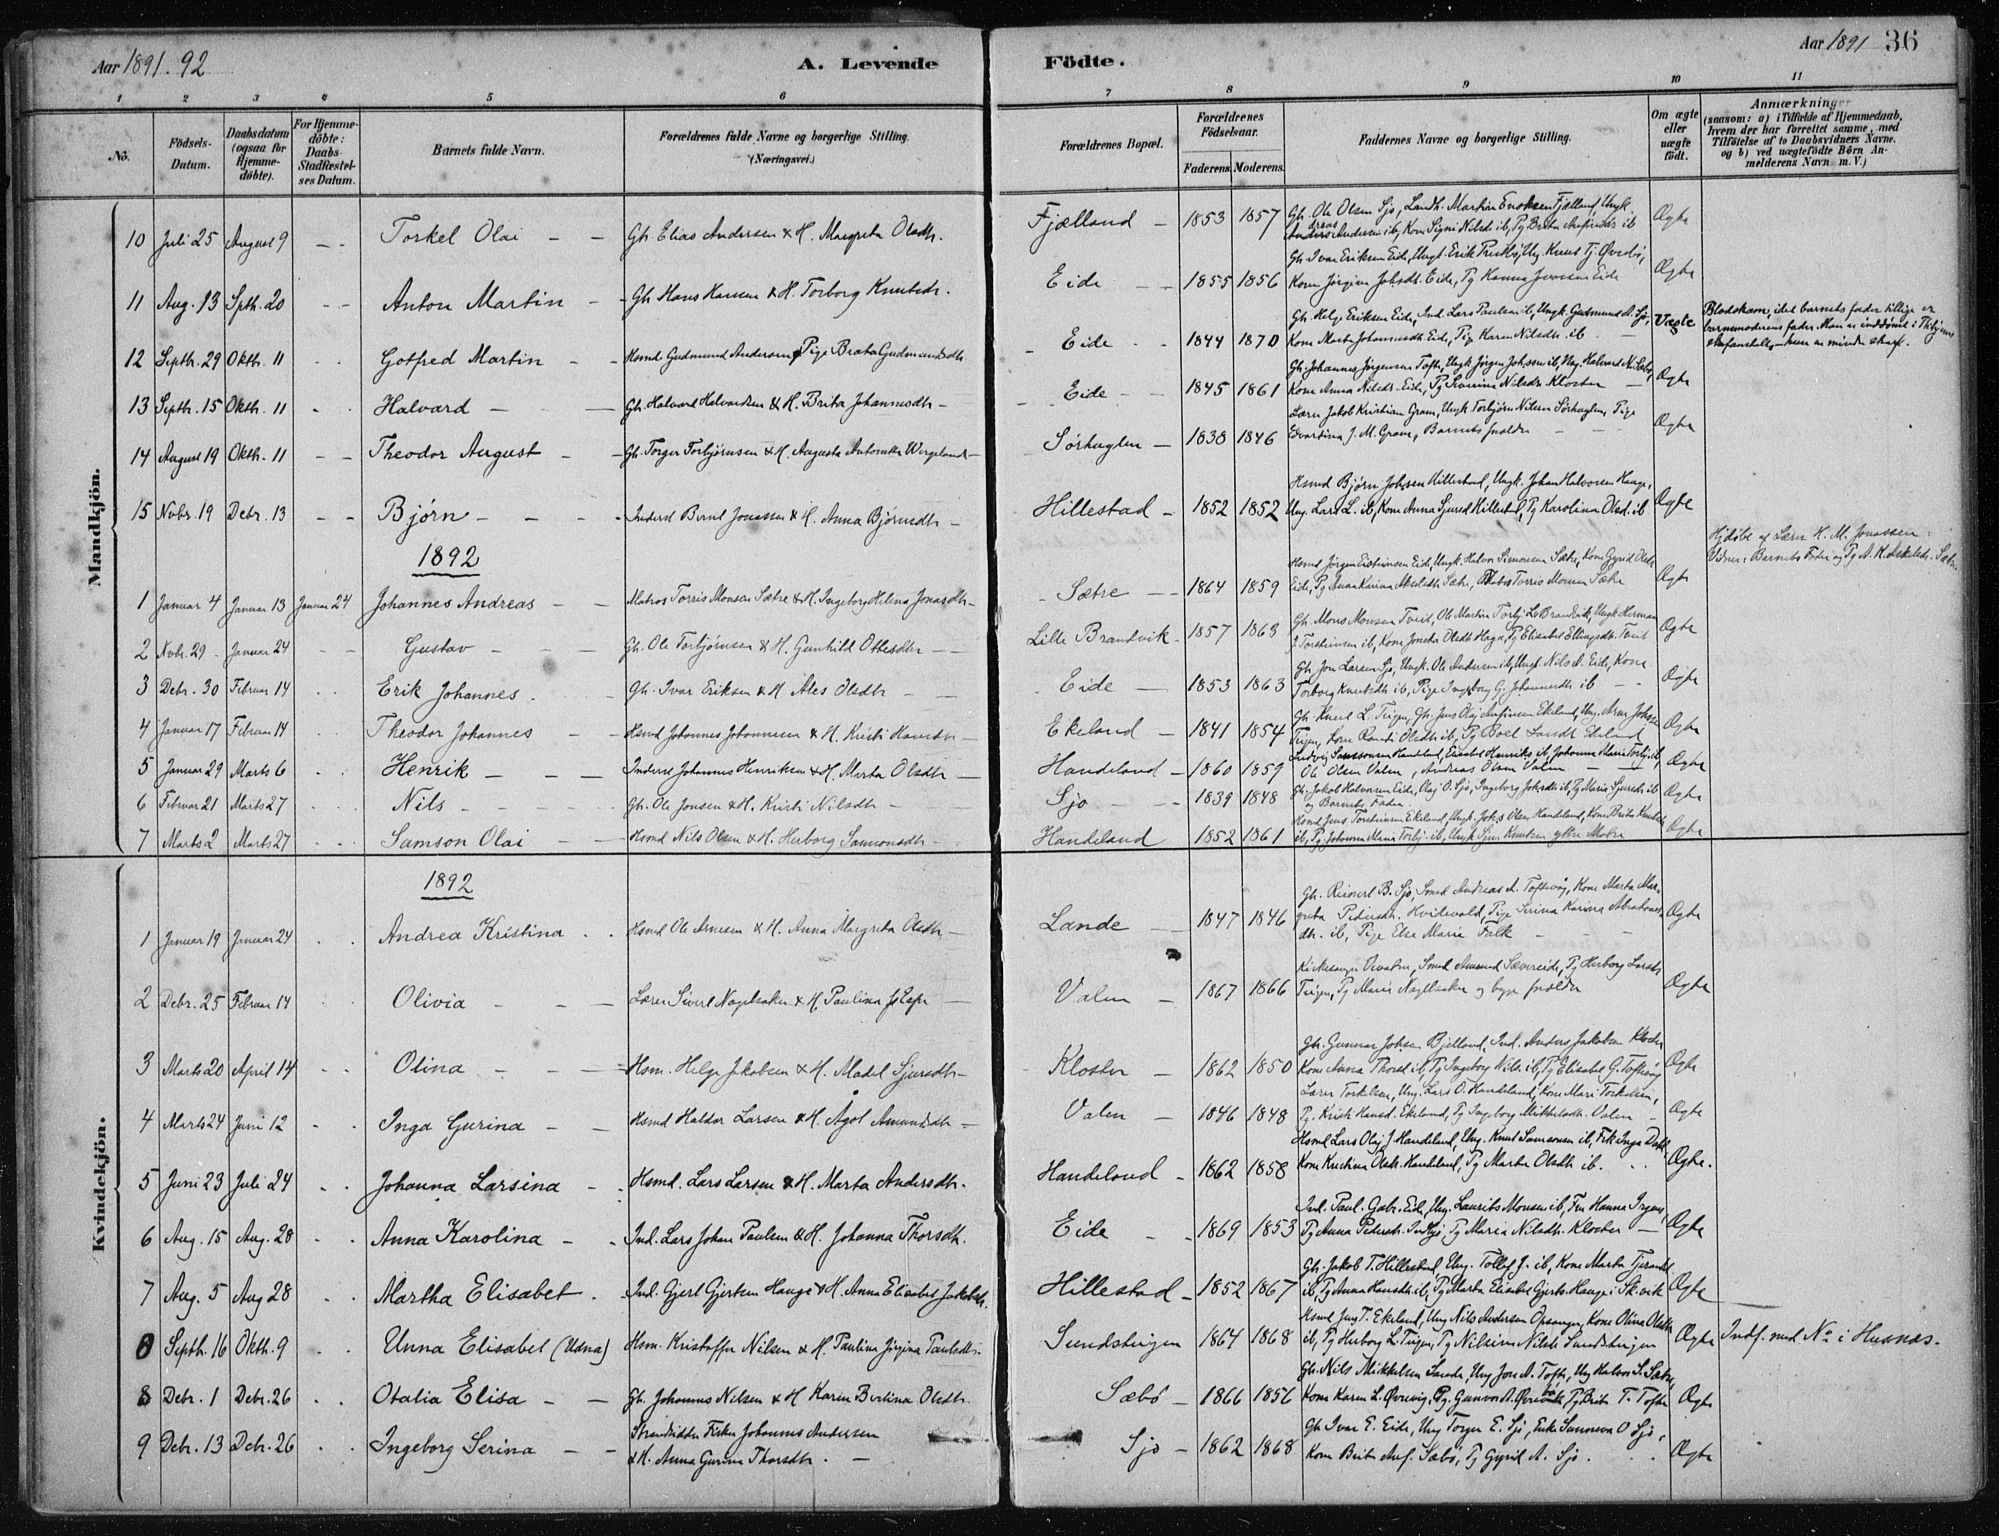 Aar 1891. 92
A. Levende Födte.
Aar 1891 36
1 2 3 4 5 6 7 8 9 10 11
No.
Födsels-Datum.
Daabsdatum (ogsaa for Hjemme-döbte).
For Hjemme-döbte: Daabs-Stadfæstel-ses Datum.
Barnets fulde Navn.
Forældrenes fulde Navne og borgerlige Stilling. (Næringsvei.)
Forældrenes Bopæl.
Forældrenes Födselsaar.
Faderens. Moderens.
Faddernes Navne og borgerlige Stilling.
Om ægte eller uægte født.
Anmærkninger (saasom: a) i Tilfælde af Hjemmedaab, hvem der har forrettet samme, med Tilföielse af to Daabsvidners Navne. og b) ved uægtefödte Börn An-melderens Navn m. V.)
Mandkjön.
10 Juli 25 August 9 - - Torkel Olai - - Gh. Elias Andersen & H. Margreta Olsdtr. Fjælland - 1853 1857 Gh. Ole Olsen Sjo, Landh. Martin Ericksen Fjælland, Ungk. Anders Andersen ib, Kone Signi Nilsdt ib, Pg Brita ib Ægte
11 Aug. 13 Spth. 20 - - Anton Martin - Gh Hans Hansen & H. Torborg Knutsdr. Eide - - 1855 1856 Gh. Ivar Eriksen Eide, Ungk. Erik Ung. Knut Tj. Kone Jørgine Johsdtr. Eide, Pg Hanna Jonsson Eide Ægte
12 Septh. 29 Okth. 11 - - Gotfred Martin - Hsmd Gudmund Andersen & Pige Brata Gudmundsdtr Eide - - 1844 1870 Gh. Helge Eriksen Eide, Ind. Lars Paulsen ib, Ungk. Gudmund A. Sjo, Kone Marta Johannesdtr Eide, Pig Karen Nilsdtr. ib Uægte Blodskam, idet barnets fader tillige er barnemoderens fader. Han er inddømt i straf.
13 Septh. 15 Okth. 11 - - Halvard - - - Gh. Halvard Halvardsen & H. Brita Johannesdtr - Eide - - 1845 1861 Gh. Johannes Jørgensen Tofte, Ungk. Jørgen Johssen ib, Ung. Halvard N. Sæbø, Kone Anna Nilsdtr. Eide, Pg Severine Nilsdtr Kloster - Ægte
14 August 19 Okth. 11 - - Theodor August - - Gh. Torger Torbjørnsen & H. Augusta Antonette Wergeland - Sørhuglen - 1838 1846 Lærer Jakob Kristian Gram, Ungk Torbjørn Nilsen Sørhuglen, Pige Edvardina J. M. Gram, Barnets forældre Ægte
15 Nvbr. 19 Debr. 13 - - Bjørn - - - Inderst Bernt Jonassen & H. Anna Bjørnsdtr - Hillestad - 1852 1852 Hsmd Bjørn Johssen Hillestad, Ungk. Johan Halvorsen Hauge, Ung. Lars L. ib, Kone Anna Sjursd Hillestad, Pg Karolina Olsd. ib Ægte
1892
1 Januar 4 Januar 13 Januar 24 Johannes Andreas - - Matros Torris Monsen Sætre & H. Ingeborg Helena Jonasdtr - Sætre - - 1864 1859 Hsmd Jørgen Eistensen Eide, Ungk. Halvor Simonsen Sætre, Kone Gyrid Olsdt Eide, Pg Anna Karina Akseldtr Sætre, Matros Torris Monsen Sætre Ægte Hjdøbt af Lærer H. M. Jonassen. Vidner: Barnets Fader og Pg A. K. Askelsdtr. Sætre
2 Nvbr. 29 - Januar 24 - - Gustav - - - Gh. Ole Torbjørnsen & H. Gunhild Ottesdtr - - Lille Brandvik - 1857 1863 Gh. Mons Monsen Tveit, Ole Martin Torbj. L. Brandvik, Ungk Herman J. Torstensen ib, Kone Joneta Olsdt Haga, Pg Elisabet Ellingsdtr. Tveit Ægte
3 Debr. 30 Februar 14 - - Erik Johannes. - Gh. Ivar Eriksen & H. Ales Olsdtr - - Eide - 1853 1863 Gh. Jon Larsen Sjo, Ungk. Ole Andersen ib, Ungk Nils A. Eide, Kone Torborg Knutsdt ib, Pige Ingeborg G. Johannesdtr ib - Ægte
4 Januar 17 Februar 14 - - Theodor Johannes - Hsmd Johannes Johannesen & H. Kristi Hansdtr - Ekeland - 1841 1854 Gh. Knut L. Teigen, Gh. Jens Olaj Arfinsen Ekeland, Ung. Arne Johssen Teigen, Kone Randi Olsdt ib, Pg Boel Larsdt Ekeland Ægte
5 Januar 29 Marts 6 - - Henrik - - - Inderst Johannes Henriksen & H. Marta Olsdtr - Handeland - 1860 1859 Ludvig Samsonsen Handeland, Elisabet Henriks ib, Johanna Marie Torbj. ib, Ole Olsen Valen, Andreas Olsen Valen - Ægte
6 Februar 21 Marts 27 - - Nils - - - Gh. Ole Jonsen & H. Kristi Nilsdtr - Sjo - - - 1839 1848 Gh. Jakob Halvorsen Eide, Olaj O. Sjo, Ingeborg Johsdtr ib, Pg Maria Sjursdt ib og Barnets Fader Ægte
7 Marts 2 Marts 27 - - Samson Olai - - Hsmd Nils Olsen & H. Herborg Samsonsdtr - Handeland 1852 1861 Hsmd Jens Torstensen Ekeland, Ungk. Johs Olsen Handeland, Kone Brita Knutsd ib, Pg Johanna Maria Torbj. ib, Ungk Sjur Knutsen ytre Matre Ægte
Kvindekjön.
1892
1 Januar 19 Januar 24 - - Andrea Kristina - - Hsmd Ole Arnesen & H. Anna Margreta Olsdtr - Lande - - 1847 1846 Gh. B. Sjo, Smed Andreas A. Toftevåg, Kone Marta Mar-greta Pedersdtr. Hvidevold, Pige Serina Karina Abrahams-dtr. ib, Pige Else Maria Falk - - Ægte
2 Debr. 25 Februar 14 - - Olivia - - - Lærer Sivert Nagelsaker & H. Paulina - Valen - 1867 1866 Kirkesanger Smed Amund Sævereide, Pg Herborg Larsdt Teigen, Pg Maria Nagelsaker og begge forældre Ægte
3 Marts 20 April 14 - - Olina - - - Hsm. Helge Jakobsen & H. Madel Sjursdtr - Kloster - 1862 1850 Gh. Gunnar Johsen Bjelland, Ind. Anders Jakobsen Kloster Kone Anna Thorsd ib, Pg Ingeborg Nils. ib, Pg Elisabet G. Toftevåg Ægte
4 Marts 24 Juni 12 - - Inga Gurina - - Hsmd Haldor Larsen & H. Ågot Amundsdtr - Valen - 1846 1848 Lærer Torkelsen, Ung. Lars O. Handeland, Kone Mari Torkelsen, Pg. Kristi Hansd. Ekeland, Pg Ingeborg Mikkelsdtr. Valen - Ægte
5 Juni 23 Juli 24 - - Johanna Larsina - - Hsmd. Lars Larsen & H. Marta Andersdtr. Handeland - 1862 1858 Hsmd Lars Olaj J. Handeland, Ung. Knut Samsonsen ib, Frk Inga Dahl Kone Kristina Olsdt. Handeland, Pg Marta Olsdt ib. - - Ægte.
6 Aug. 15 Aug. 28 - - Anna Karolina - - Ind. Lars Johan Paulsen & H. Johanna Thorsdtr. Eide - - 1869 1853 Ind. Paul. Gabr. Eid, Ung. Laurits Monsen ib, Fru Hanna Irgens, Pg Anna Pedersdtr. Pg Maria Nilsdtr. Kloster - Ægte
7 Aug. 5 Aug 28 - - Martha Elisabet - Ind. Gjert Gjertsen Hauge & H. Anna Elisabet Jakobsdtr. Hillestad - 1852 1867 Gh. Jakob T. Hillestad, Ung. Tollef J. ib, Kone Marta Tjerandsd ib, Pg Anna Hansdtr ib, Pg Marta Elisabet Gjerts. Hauge i Skvik Ægte
Septh. 16 Okth. 9 - - Unna Elisabet (Udna) Hsm. Kristoffer Nilsen & H. Paulina Jørgina Paulsdtr. Sundsteigen 1864 1868 Hsmd Jens T. Ekeland, Ung Nils Andersen Opsanger, Kone Olina Olsdtr ib, Pg Herborg L. Teigen, Pg Nilsine Nilsdt Sundsteigen Ægte Indf. med No i Husnæs.
8 Debr. 1 Debr. 26 - - Otalia Elisa - - Gh. Johannes Nilsen & H Karen Bertina Olsdtr. Sæbø - 1866 1856 Gh. Nils Mikkelsen Sande, Ung Jon A. Tofte, Ung Halvor S. Sæbø, Kone Karen L. Øvrevig, Pg. Gunvor A. Pg Brita T. Tofte Ægte
9 Debr. 13 Debr. 26 - - Ingeborg Serina - - Strandsidder Fisker Johannes Andersen & H. Anna Gurine Thorsdtr. - Sjo - 1862 1868 Gh Ivar E. Eide, Ung Torger E. Sjo, Enke Sunneva O Sjo, Kone Brita Arf. Sæbø, Pg Gyrid A. Sjo. - - Ægte